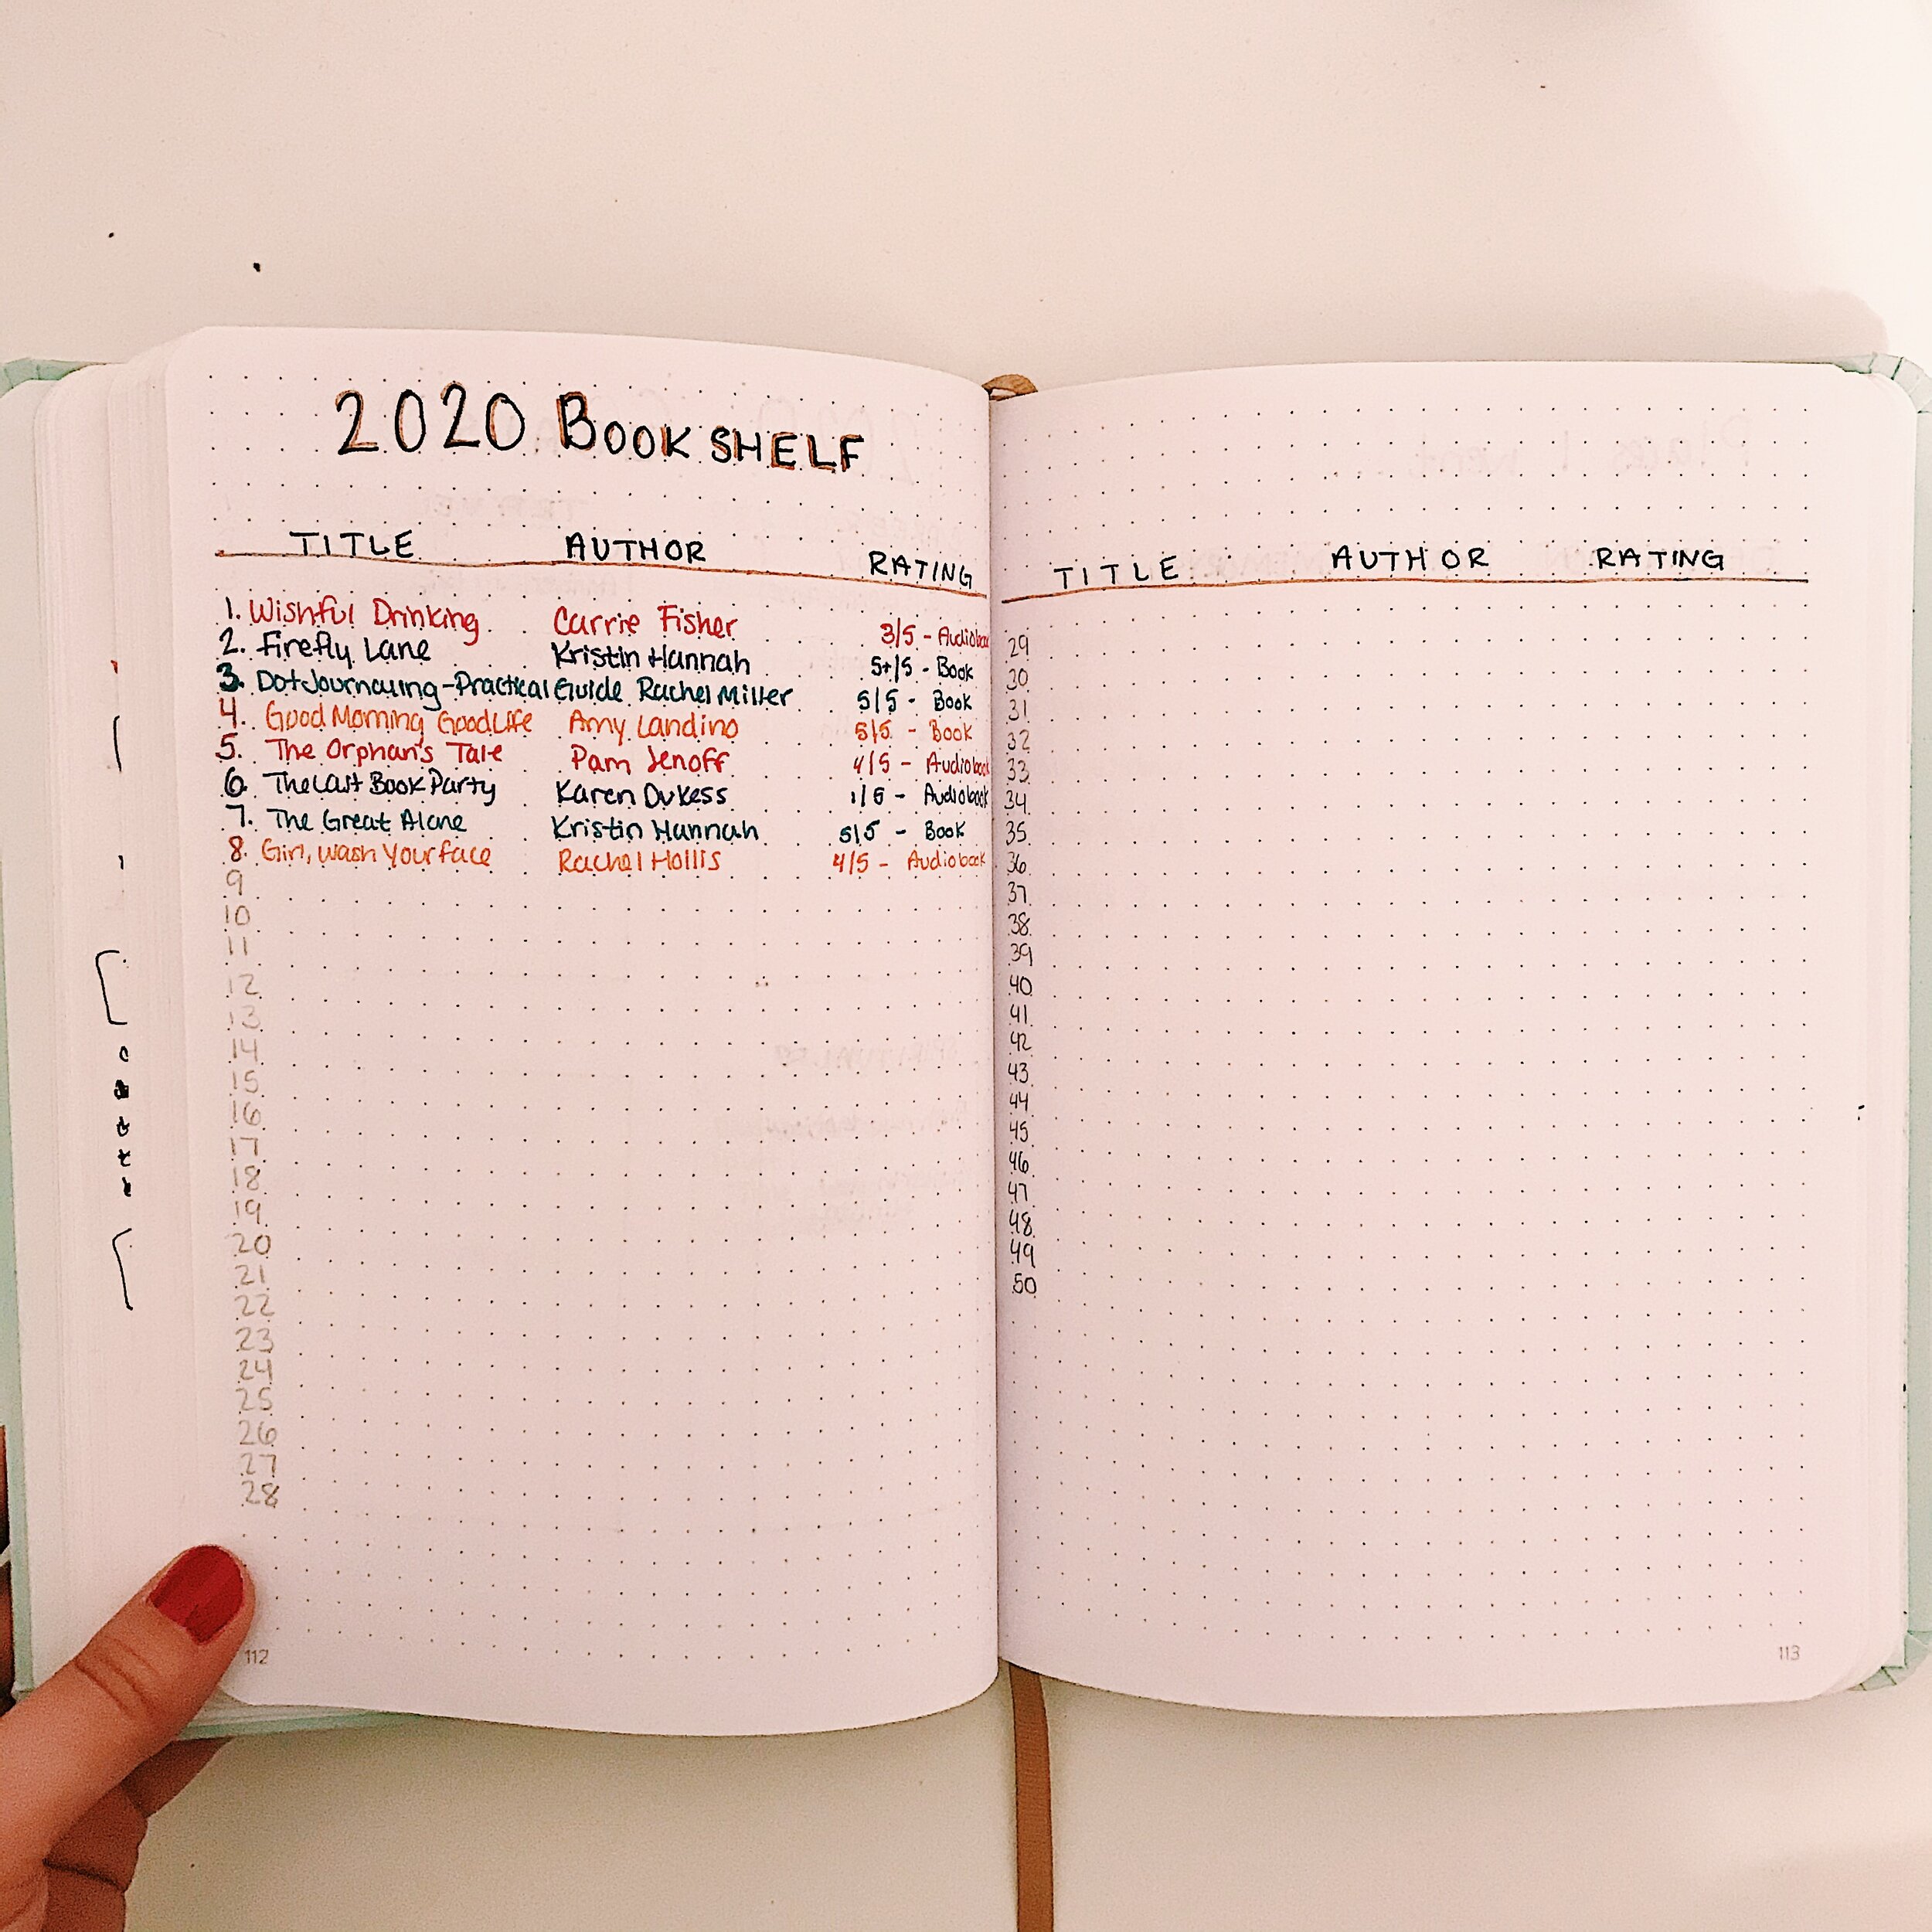 2020 BOOKSHELF
TITLE AUTHOR RATING
1. Wishful Drinking Carrie Fisher 3/5 - Audiobook
2. Firefly Lane Kristin Hannah 5+/5 - Book
3. Dot Journaling - Practical Guide Rachel Miller 5/5 - Book
4. Good Morning Good Life Amy Landino 5/5 - Book
5. The Orphan's Tale Pam Jenoff 4/5 - Audiobook
6. The Last Book Party Karen Dukess 1/5 - Audiobook
7. The Great Alone Kristin Hannah 5/5 - Book
8. Girl, Wash Your Face Rachel Hollis 4/5 - Audiobook
9
10
11
12
13
14
15
16
17
18
19
20
21
22
23
24
25
26
27
28
112
TITLE AUTHOR RATING
29
30
31
32
33
34
35
36
37
38
39
40
41
42
43
44
45
46
47
48
49
50
113